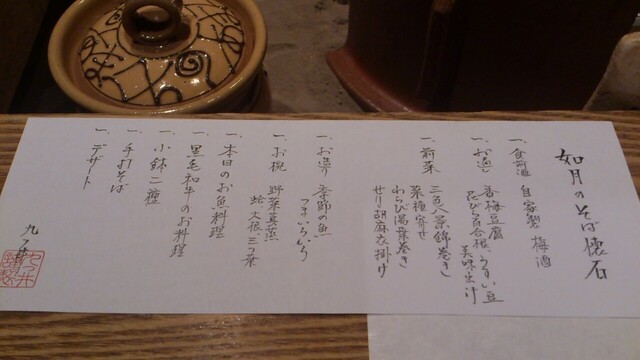 如月のそば懐石
一、食前酒 自家製 梅酒
一、お通し 香梅豆腐
花びら百合根、うすい豆
美味出汁
一、前菜 三色八景錦巻き
菜種寄せ
わらび湯葉巻き
せり胡麻衣掛け
一、お造り 季節の魚
つまいろいろ
一、お椀 野菜真蒸
蛤、大根、三つ葉
一、本日のお魚料理
一、黒毛和牛のお料理
一、小鉢二種
一、手打そば
一、デザート
九つ井